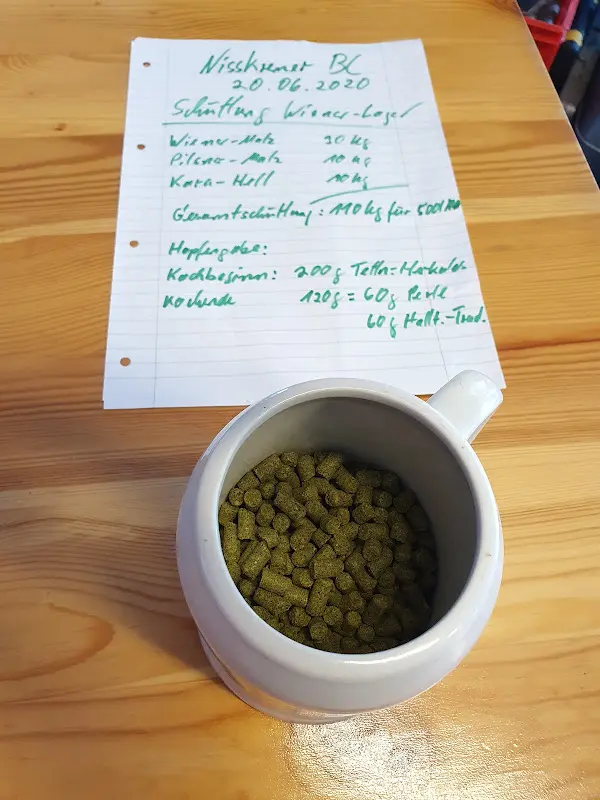 Nisskremer BC
20.06.2020
Schüttung Wiener-Lager
Wiener-Malz 90 kg
Pilsner-Malz 10 kg
Kara-Hell 10 kg
Gesamtschüttung: 110 kg für
Hopfengabe:
Kochbeginn: 200g Tettn.
Kochende 120g = 60g Perle
60g Hallt.-Trad.